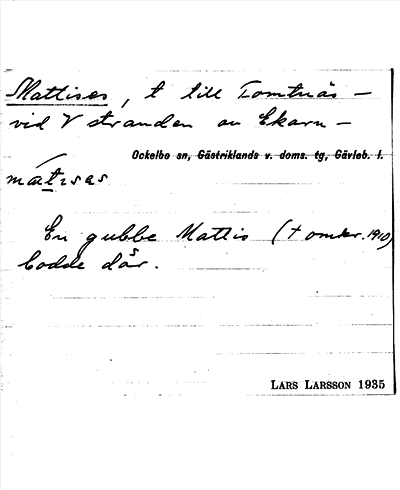 Mattises, t till Tomtnäs –
vid V stranden av Ekarn –
Ockelbo sn, Gästriklands v. doms. tg, Gävleb. l.
mátisas
En gubbe Mattis († omkr. 1910)
bodde där.
LARS LARSSON 1935